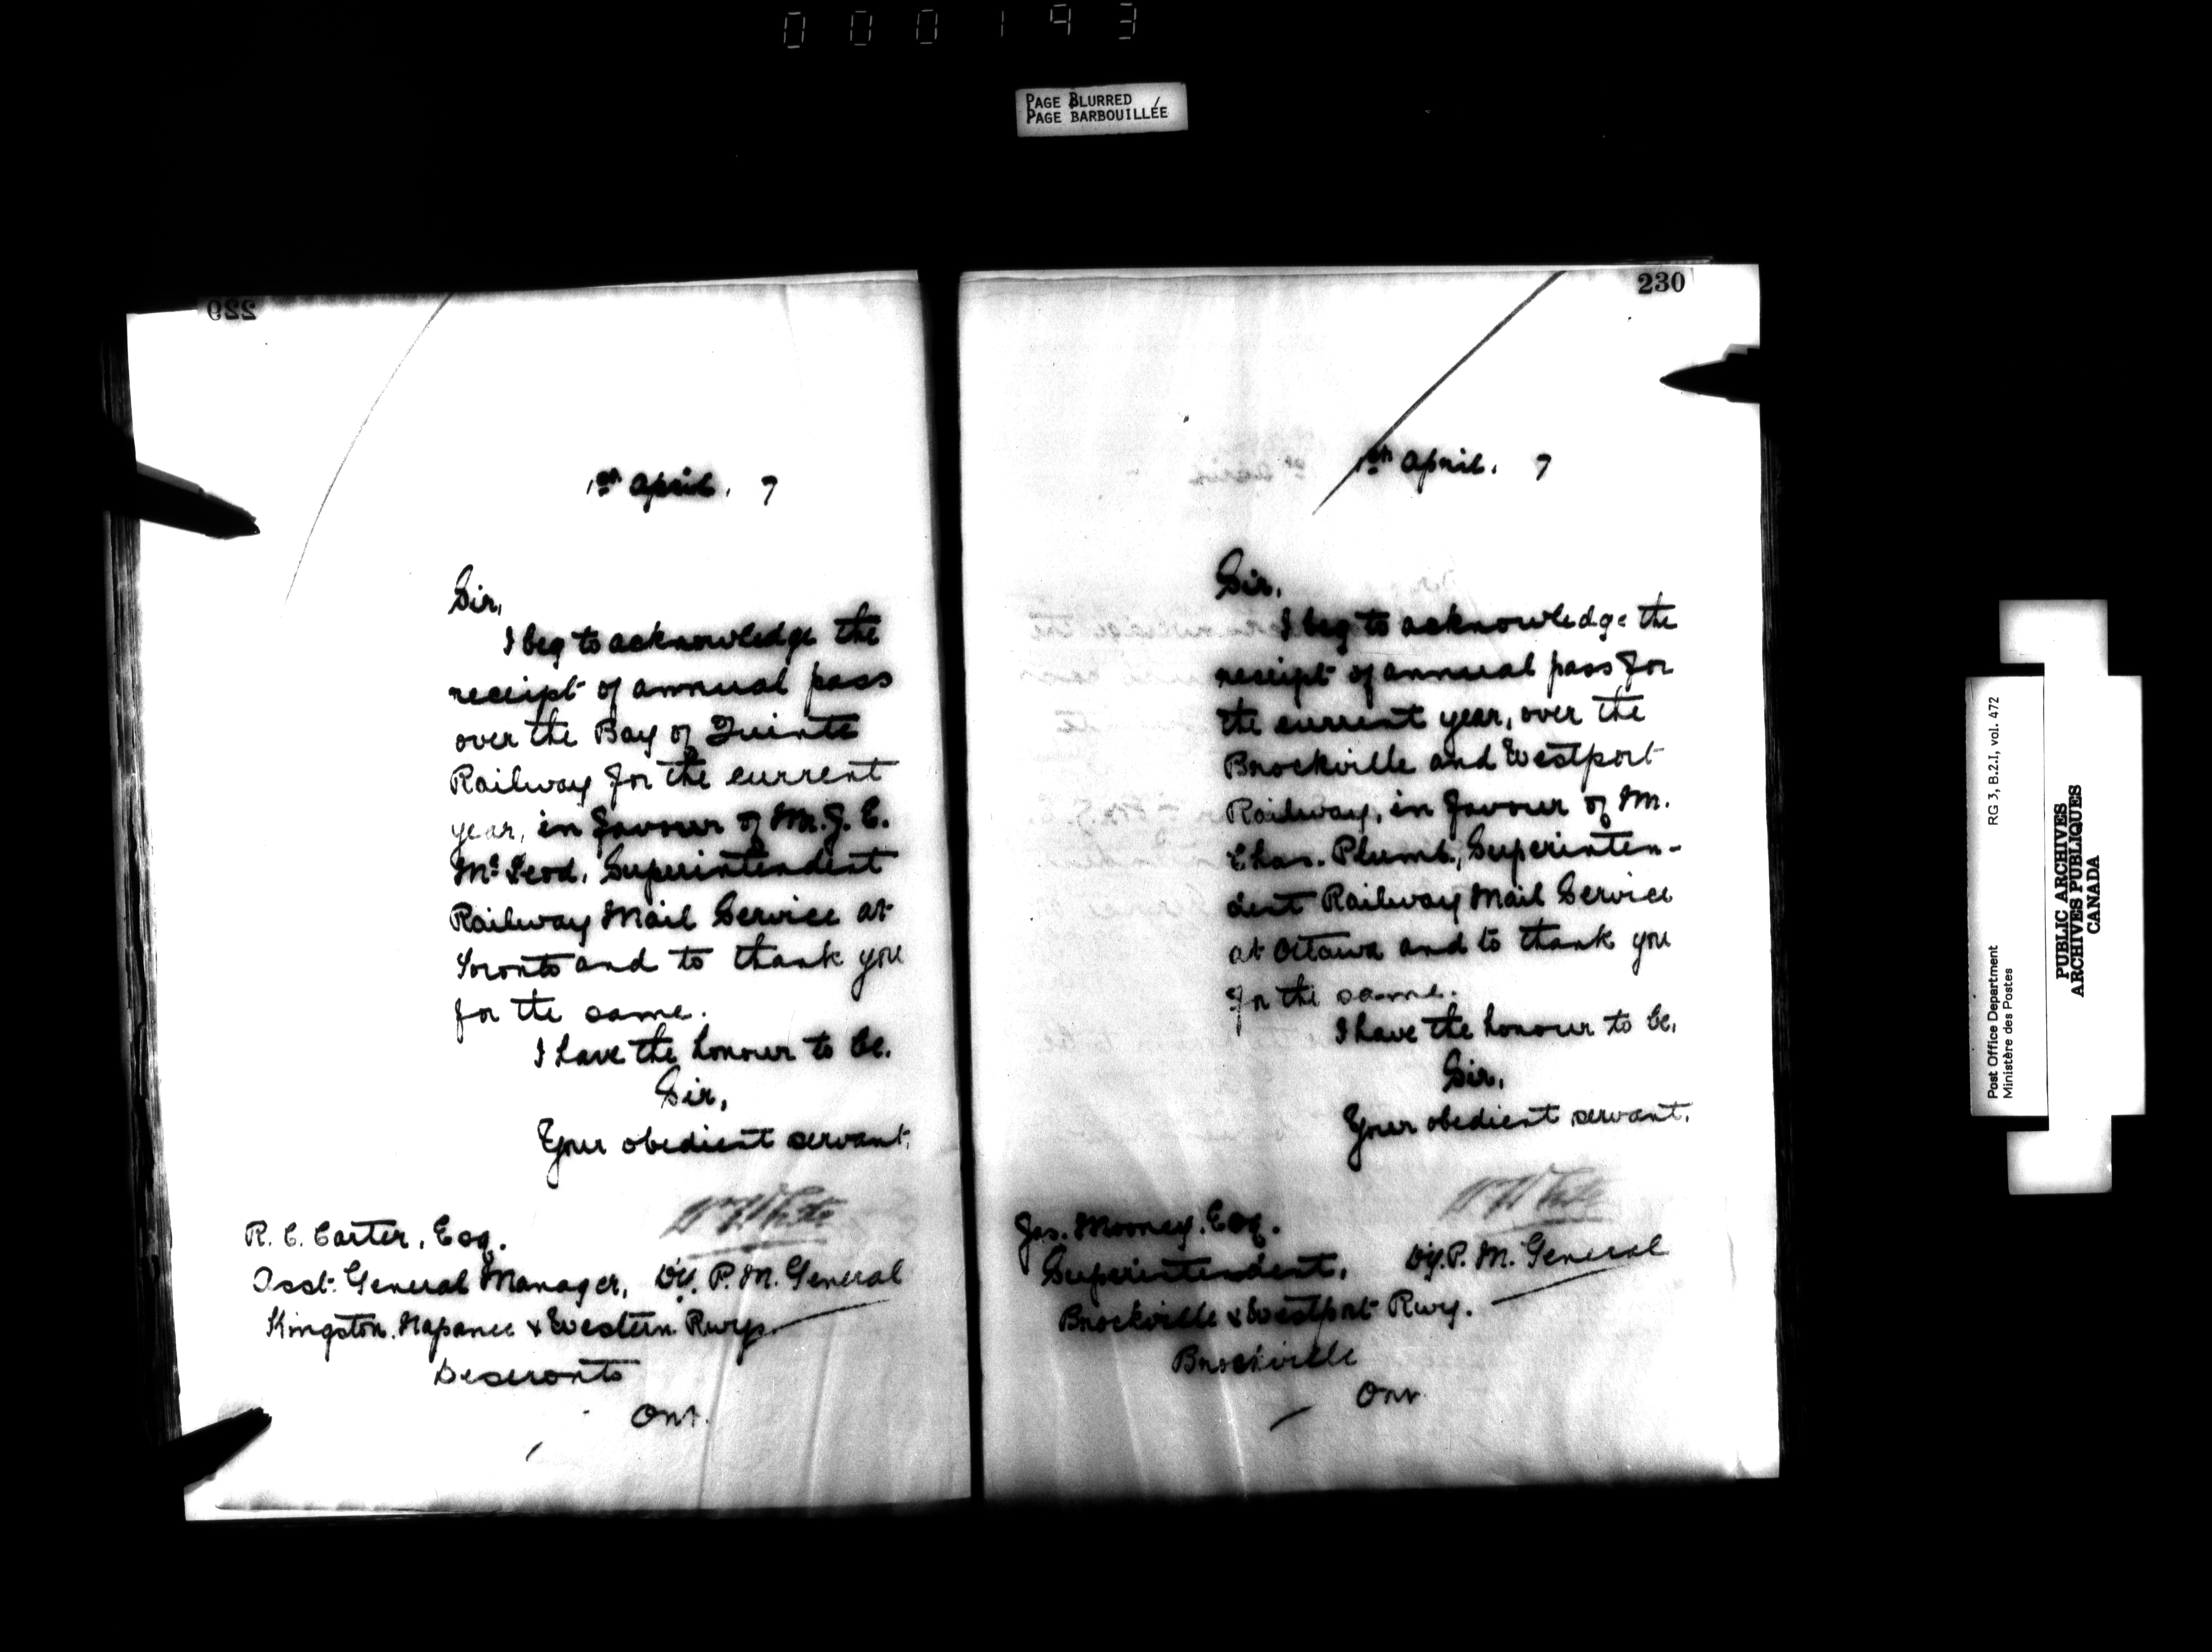 000193
PAGE BLURRED
PAGE BARBOUILLÉE
229
1st April. 7
Sir,
I beg to acknowledge the
receipt of annual pass
over the Bay of Quinte
Railway for the current
year, in favour of Mr. J. E.
McLeod, Superintendent
Railway Mail Service at
Toronto and to thank you
for the same.
I have the honour to be.
Sir,
Your obedient servant.
R. C. Carter, Esq.
Asst. General Manager, Dy. P. M. General
Kingston, Napanee & Western Rwy.
Deseronto
Ont.
230
April. 7
Sir,
I beg to acknowledge the
receipt of annual pass for
the current year, over the
Brockville and Westport
Railway, in favour of M.
Chas. Plumb, Superinten-
dent Railway Mail Service
at Ottawa and to thank you
for the same.
I have the honour to be,
Sir,
Your obedient servant.
Jas. Mooney, Esq.
Superintendent, Dy. P. M. General
Brockville & Westport Rwy.
Brockville
Ont
RG 3, B.2.I, vol. 472
Post Office Department
Ministère des Postes
PUBLIC ARCHIVES
ARCHIVES PUBLIQUES
CANADA